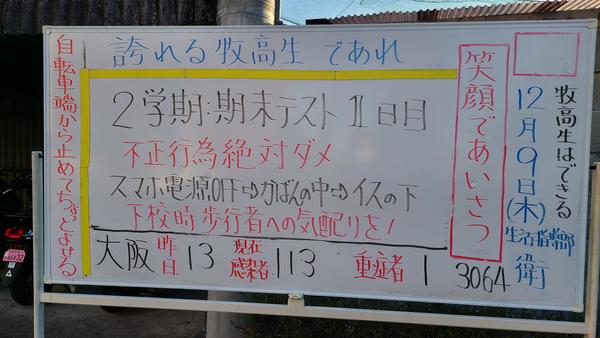 誇れる牧高生であれ
2学期:期末テストⅡ日目
不正行為絶対ダメ
スマホ電源OFF⇨かばんの中⇨イスの下
下校時歩行者への気配りを!
大阪 昨日 13 現在感染者 113 重症者 1 3064
笑顔であいさつ
牧高生はできる
12月9日(木)
生活指導部
衛
自転車端から止めてちょっとよせる